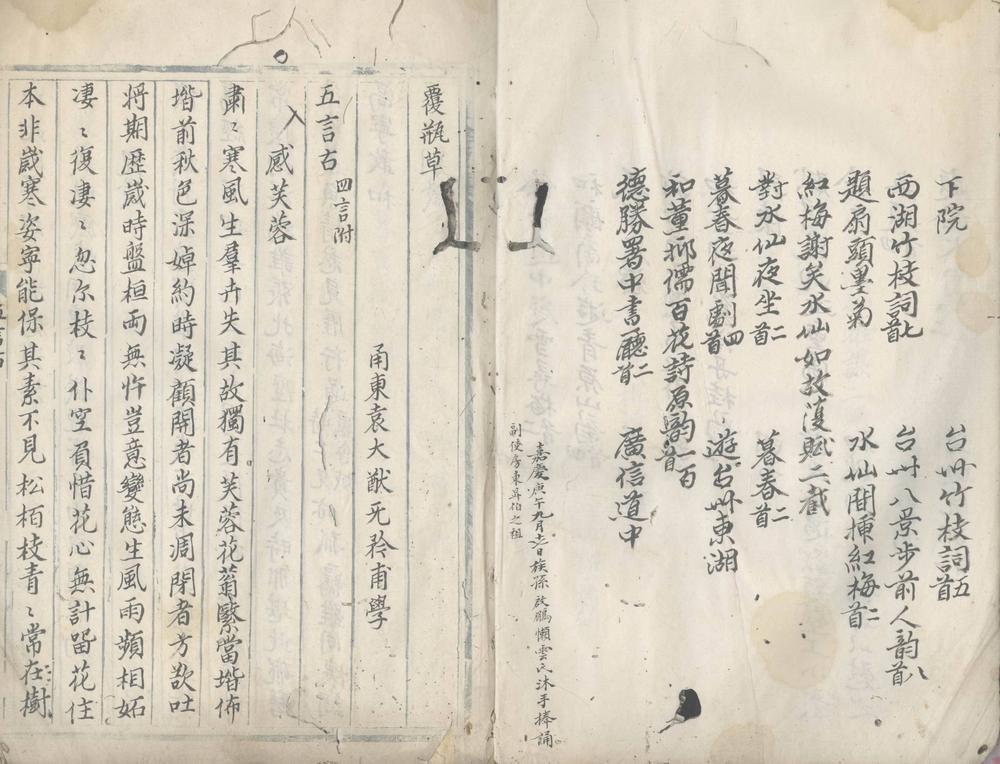 下院　台州竹枝詞五首
西湖竹枝詞七首　台州八景步前人韵八首
題扇頭墨菊　水仙間揷紅梅二首
紅梅謝矣水仙如故復賦二截
對水仙夜坐二首　暮春二首
暮春夜聞劇四首　遊台州東湖
和董抑儒百花詩原韵一百首
德勝署中書廳二首　廣信道中
嘉慶庚午九月十二日族孫啟鵬懶雲氏沐手捧誦
副使房東昇伯之祖
覆瓿草
甬東袁大猷旡矜甫學
五言古 四言附
感芙蓉
肅〻寒風生羣卉失其故獨有芙蓉花蓊翳當堦佈
堦前秋色深婥約時凝顧開者尚未凋閉者方欲吐
将期歷歲時盤桓両無忤豈意變態生風雨頻相妬
凄〻復凄〻忽尔枝〻仆空負惜花心無計畱花住
本非歲寒姿寜能保其素不見松栢枝青〻常在樹
五言古